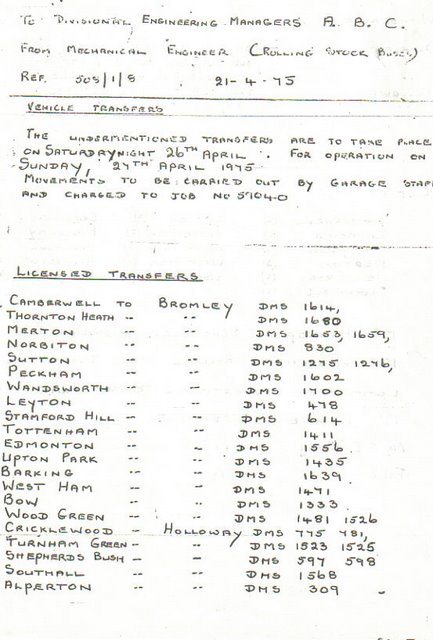 To Divisional Engineering Managers A. B. C.
From Mechanical Engineer (Rolling Stock Buses)
Ref. 505/1/8 21-4-75
Vehicle Transfers
The undermentioned transfers are to take place
on Saturday night 26th April. For operation on
Sunday, 27th April 1975
Movements to be carried out by garage staff
and charged to job No 57040
Licensed Transfers
Camberwell to Bromley DMS 1614,
Thornton Heath -- -- DMS 1680
Merton -- -- DMS 1653, 1659,
Norbiton -- -- DMS 830
Sutton -- -- DMS 1275 1276,
Peckham -- -- DMS 1602
Wandsworth -- -- DMS 1700
Leyton -- -- DMS 478
Stamford Hill -- -- DMS 614
Tottenham -- -- DMS 1411
Edmonton -- -- DMS 1556
Upton Park -- -- DMS 1435
Barking -- -- DMS 1639
West Ham -- -- DMS 1471
Bow -- -- DMS 1333
Wood Green -- -- DMS 1481 1526
Cricklewood -- Holloway DMS 775 781,
Turnham Green -- -- DMS 1523 1525
Shepherds Bush -- -- DMS 597 598
Southall -- -- DMS 1568
Alperton -- -- DMS 309